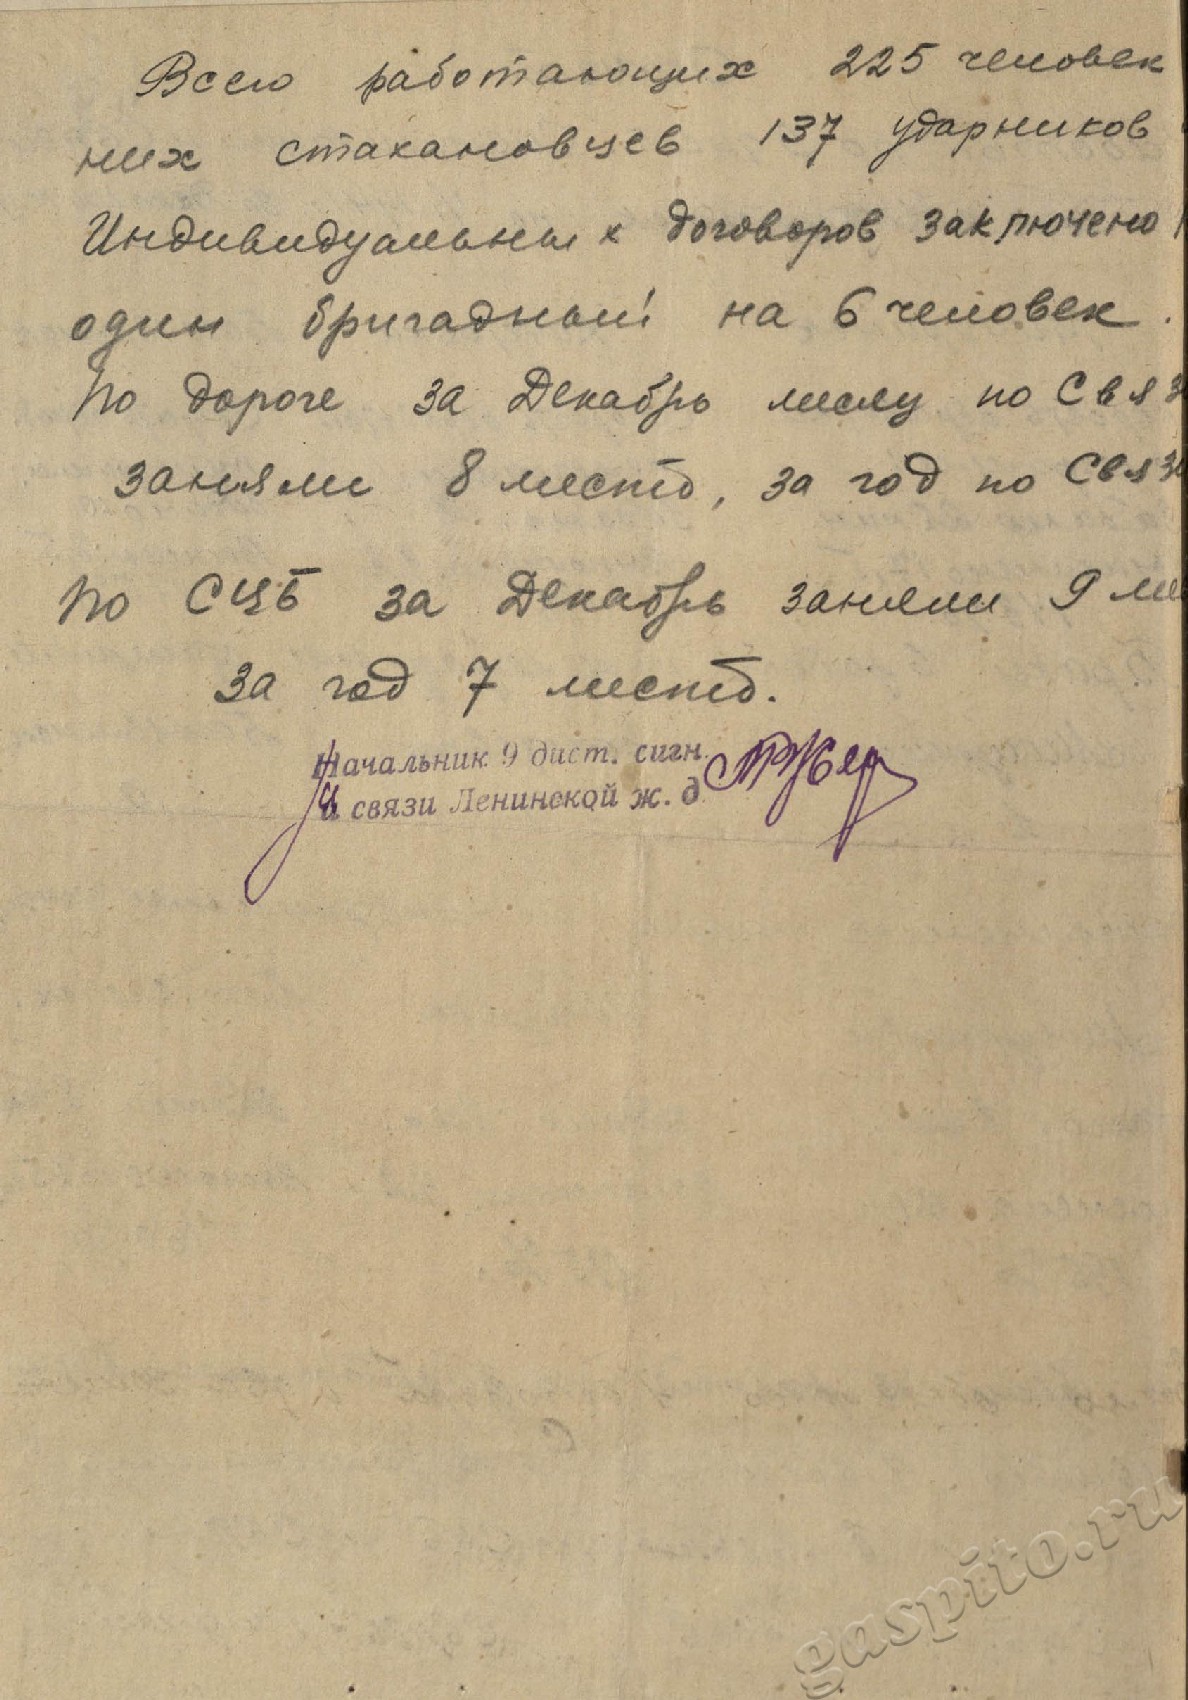 Всего работающих 225 человек
них стахановцев 137 ударников
Индивидуальных договоров заключено
один бригадный на 6 человек.
По дороге за Декабрь месяц по Связ
заняли 8 место, за год по Связи
По СЦБ за Декабрь заняли 9 ме
за год 7 место.
Начальник 9 дист. сигн.
и связи Ленинской ж. д.
gaspito.ru